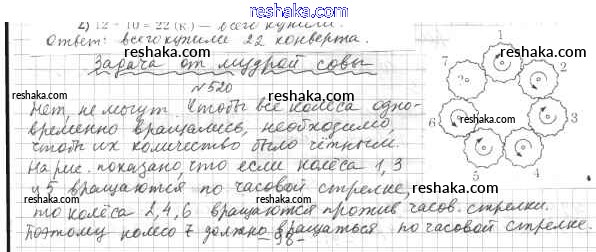 reshaka.com
2) 12 + 10 = 22 (к.) — всего купили.
Ответ: всего купили 22 конверта.
reshaka.com
Задача от мудрой совы
№ 520
Нет, не могут. Чтобы все колёса одно-
временно вращались, необходимо,
чтобы их количество было чётным.
На рис. показано, что если колёса 1, 3
и 5 вращаются по часовой стрелке,
то колёса 2, 4, 6 вращаются против часов. стрелки.
Поэтому колесо 7 должно вращаться по часовой стрелке.
– 98 –
1
2
3
4
5
6
7
?
reshaka.com
reshaka.com
reshaka.com
reshaka.com
reshaka.com
reshaka.com
reshaka.com
reshaka.com
reshaka.com